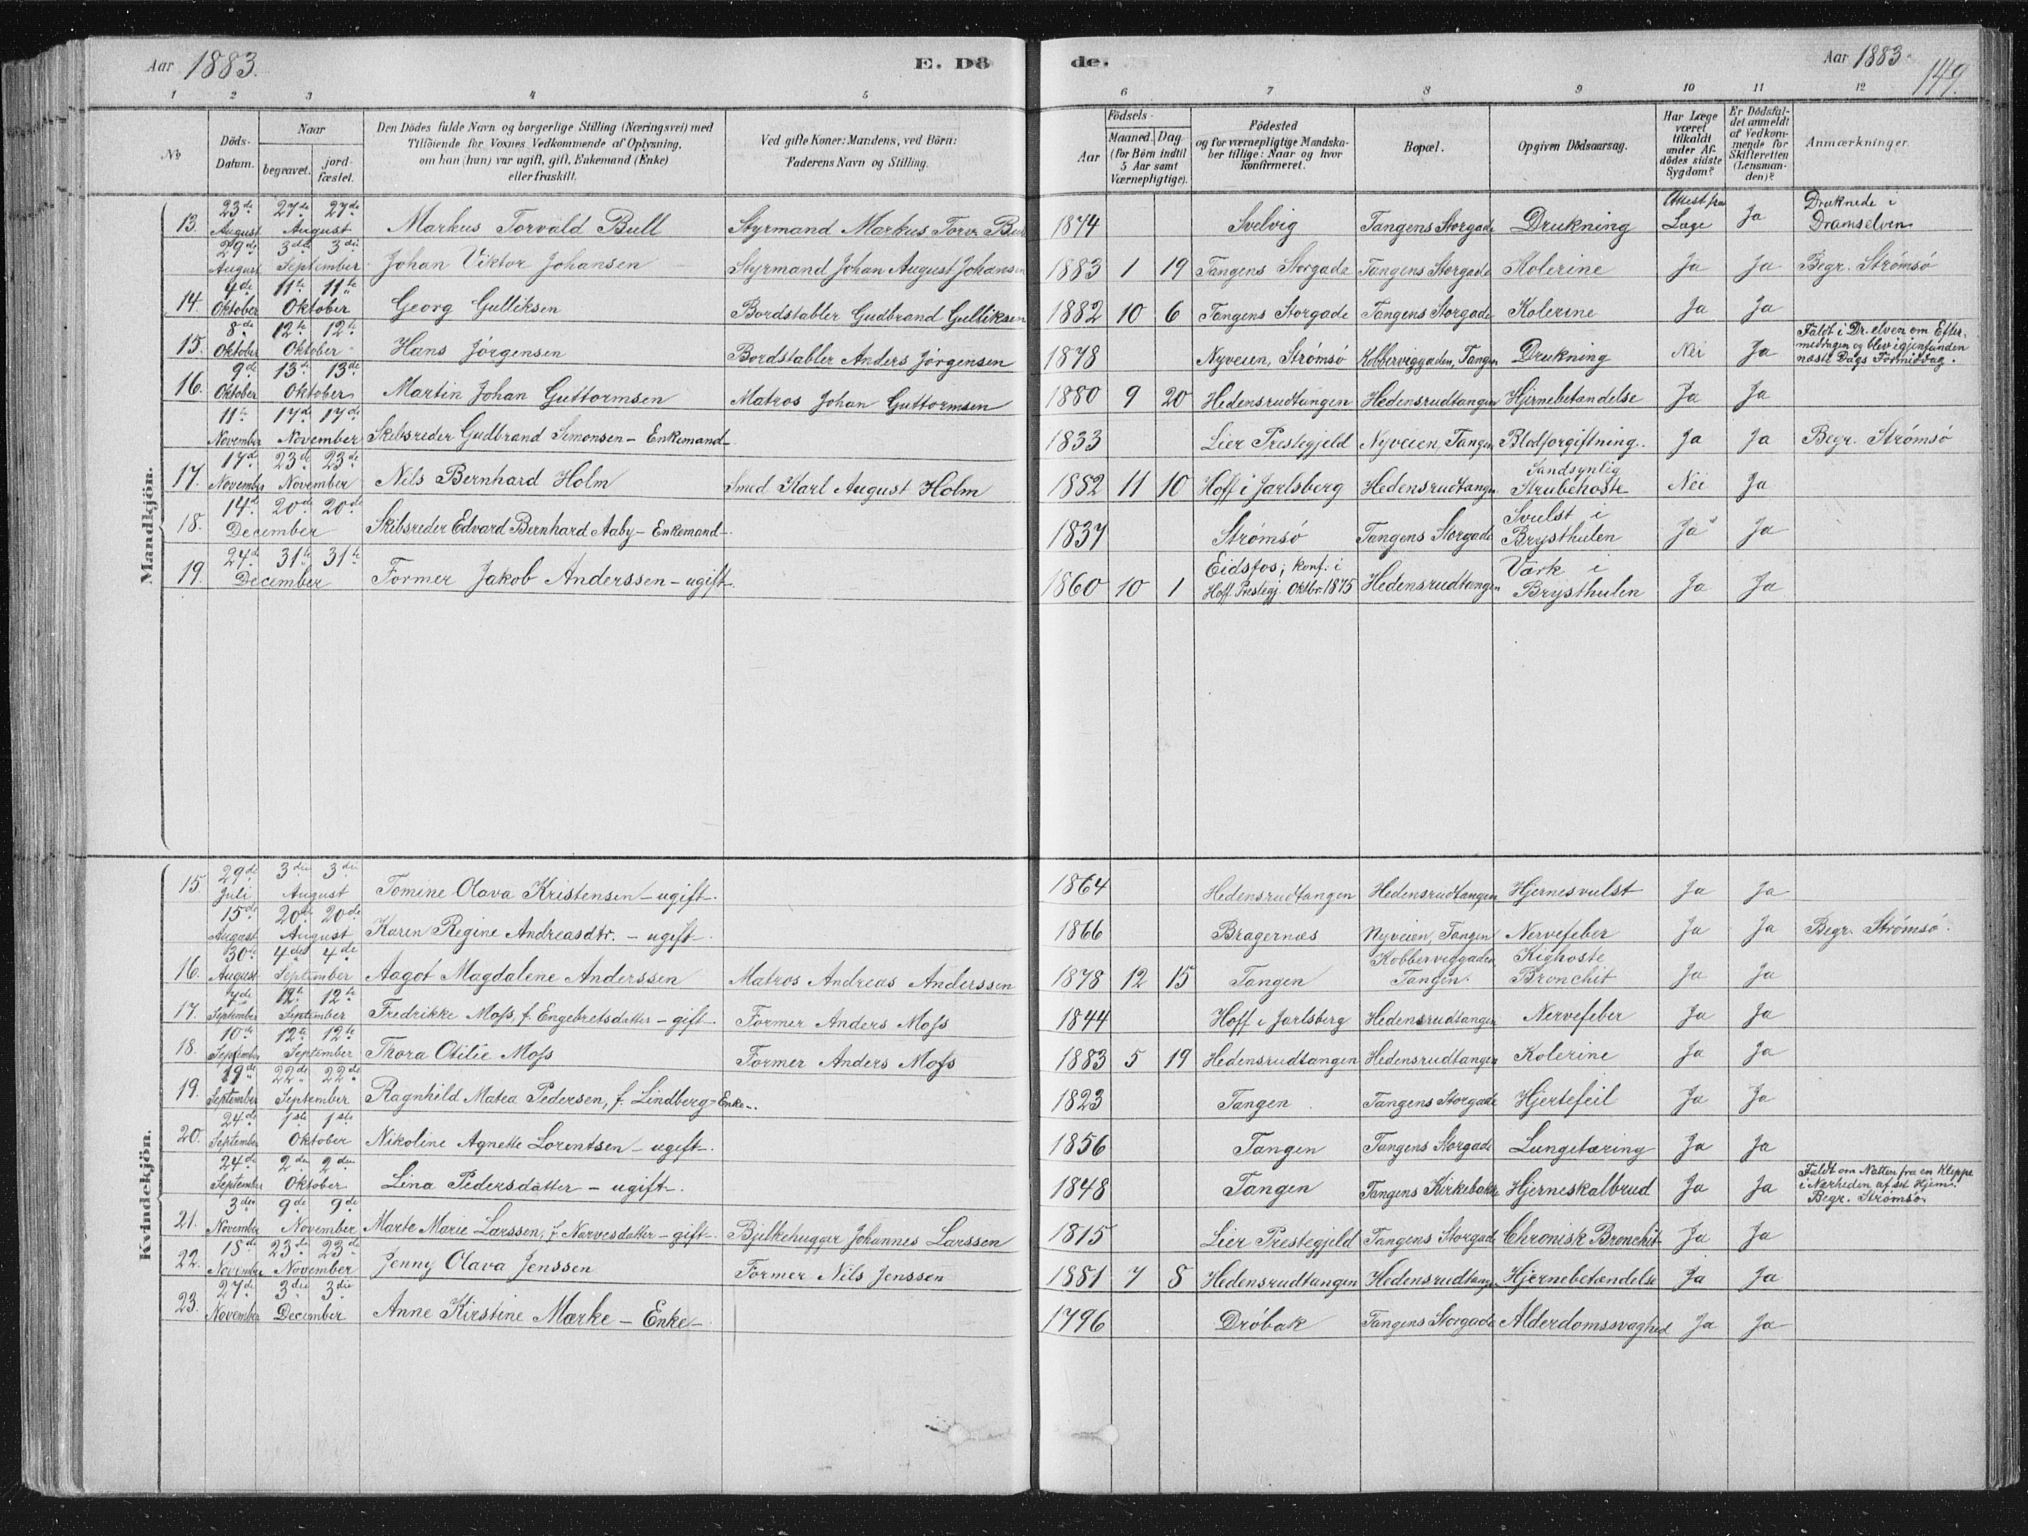 Aar 1883. E. Dö
de. Aar 1883. 149.
1 2 3 4 5 6 7 8 9 10 11 12
No Döds-Datum. Naar begravet. jord-fæstet. Den Dödes fulde Navn og borgerlige Stilling (Næringsvei) med Tilföiende for Voxnes Vedkommende af Oplysning, om han (hun) var ugift, gift, Enkemand (Enke) eller fraskilt. Ved gifte Koner: Mandens, ved Börn: Faderens Navn og Stilling. Födsels- Aar Maaned. Dag (for Börn indtil 5 Aar samt Værnepligtige). Födested og for værnepligtige Mandska-ber tillige: Naar og hvor konfirmeret. Bopæl. Opgiven Dödsaarsag. Har Læge været tilkaldt under Af-dödes sidste Sygdom? Er Dödsfal-det anmeldt af Vedkom-mende for Skifteretten (Lensman-den)? Anmærkninger.
Mandkjön.
13. 23de August 27de 27de August Markus Torvald Bull Styrmand Markus Torv. Bull 1874 Svelvig Tangens Storgade Drukning Attest fra Læge Ja Druknede i Dramselven
29de August 3die 3die September Johan Viktor Johansen Styrmand Johan August Johansen 1883 1 19 Tangens Storgade Tangens Storgade Kolerine Ja Ja Begr. Strømsø
14. 4de Oktober 11te 11te Oktober Georg Gulliksen Bordstabler Gudbrand Gulliksen 1882 10 6 Tangens Storgade Tangens Storgade Kolerine Ja Ja
15. 8de Oktober 12te 12te Oktober Hans Jørgensen Bordstabler Anders Jørgensen 1878 Nyveien, Strømsø Kobberviggaden, Tangen Drukning Nei Ja Faldt i Dr.elven om Efter-middagen og blev igjenfunden næste Dags Formiddag.
16. 9de Oktober 13de 13de Oktober Martin Johan Guttormsen Matros Johan Guttormsen 1880 9 20 Hedensrudtangen Hedensrudtangen Hjernebetændelse Ja Ja
11te November 17de 17de November Skibsreder Gudbrand Simonsen – Enkemand 1833 Lier Prestegjeld Nyveien, Tangen Blodforgiftning. Ja Ja Begr. Strømsø
17. 17de November 23de 23de November Nils Bernhard Holm Smed Karl August Holm 1882 11 10 Hoff i Jarlsberg Hedensrudtangen Sandsynlig Strubehoste Nei Ja
18. 14de 20de 20de December Skibsreder Edvard Bernhard Aaby – Enkemand – 1837 Strømsø Tangens Storgade Svulst i Brysthulen Ja Ja
19. 24de 31te 31te December Former Jakob Anderssen – ugift 1860 10 1 Eidsfos; konf. i Hoff Prestegj. Oktbr. 1875 Hedensrudtangen Værk i Brysthulen Ja Ja
Kvindekjön.
15. 29de Juli 3die 3die August Tomine Olava Kristensen – ugift. 1864 Hedensrudtangen Hedensrudtangen Hjernesvulst Ja Ja
15de August 20de 20de August Karen Regine Andreasdtr. – ugift. 1866 Bragernæs Nyveien, Tangen Nervefeber Ja Ja Begr. Strømsø.
16. 30te August 4de 4de September Aagot Magdalene Anderssen Matros Andreas Anderssen 1878 12 15 Tangen Kobberviggaden Tangen. Kighoste Bronchit Ja Ja
17. 7de September 12te 12te September Fredrikke Moss, f. Engebretsdatter – gift. Former Anders Moss 1844 Hoff i Jarlsberg Hedensrudtangen Nervefeber Ja Ja
18. 10de September 12te 12te September Thora Otilie Moss Former Anders Moss 1883 5 19 Hedensrudtangen Hedensrudtangen Kolerine Ja Ja
19. 19de September 22de 22de September Ragnhild Matea Pedersen, f. Lindberg – Enke. 1823 Tangen Tangens Storgade Hjertefeil Ja Ja
20. 24de September 1ste 1ste Oktober Nikoline Agnette Lorentsen – ugift. 1856 Tangen Tangens Storgade Lungetæring Ja Ja
24de September 2den 2den Oktober Lina Pedersdatter – ugift. 1848 Tangen Tangens Kirkebakke Hjerneskalbrud Ja Ja Faldt om Natten fra en Klippe i Nærheden af sit Hjem. Begr. Strømsø.
21. 3die November 9de 9de November Marte Marie Larssen, f. Narvesdatter – gift. Bjelkehugger Johannes Larssen 1815 Lier Prestegjeld Tangens Storgade Chronisk Bronchit Ja Ja
22. 18de November 23de 23de November Jenny Olava Jenssen Former Nils Jenssen 1881 7 8 Hedensrudtangen Hedensrudtangen Hjernebetændelse Ja Ja
23. 27de November 3die 3die December Anne Kirstine Mærke – Enke – 1796 Drøbak Tangens Storgade Alderdomssvaghed Ja Ja